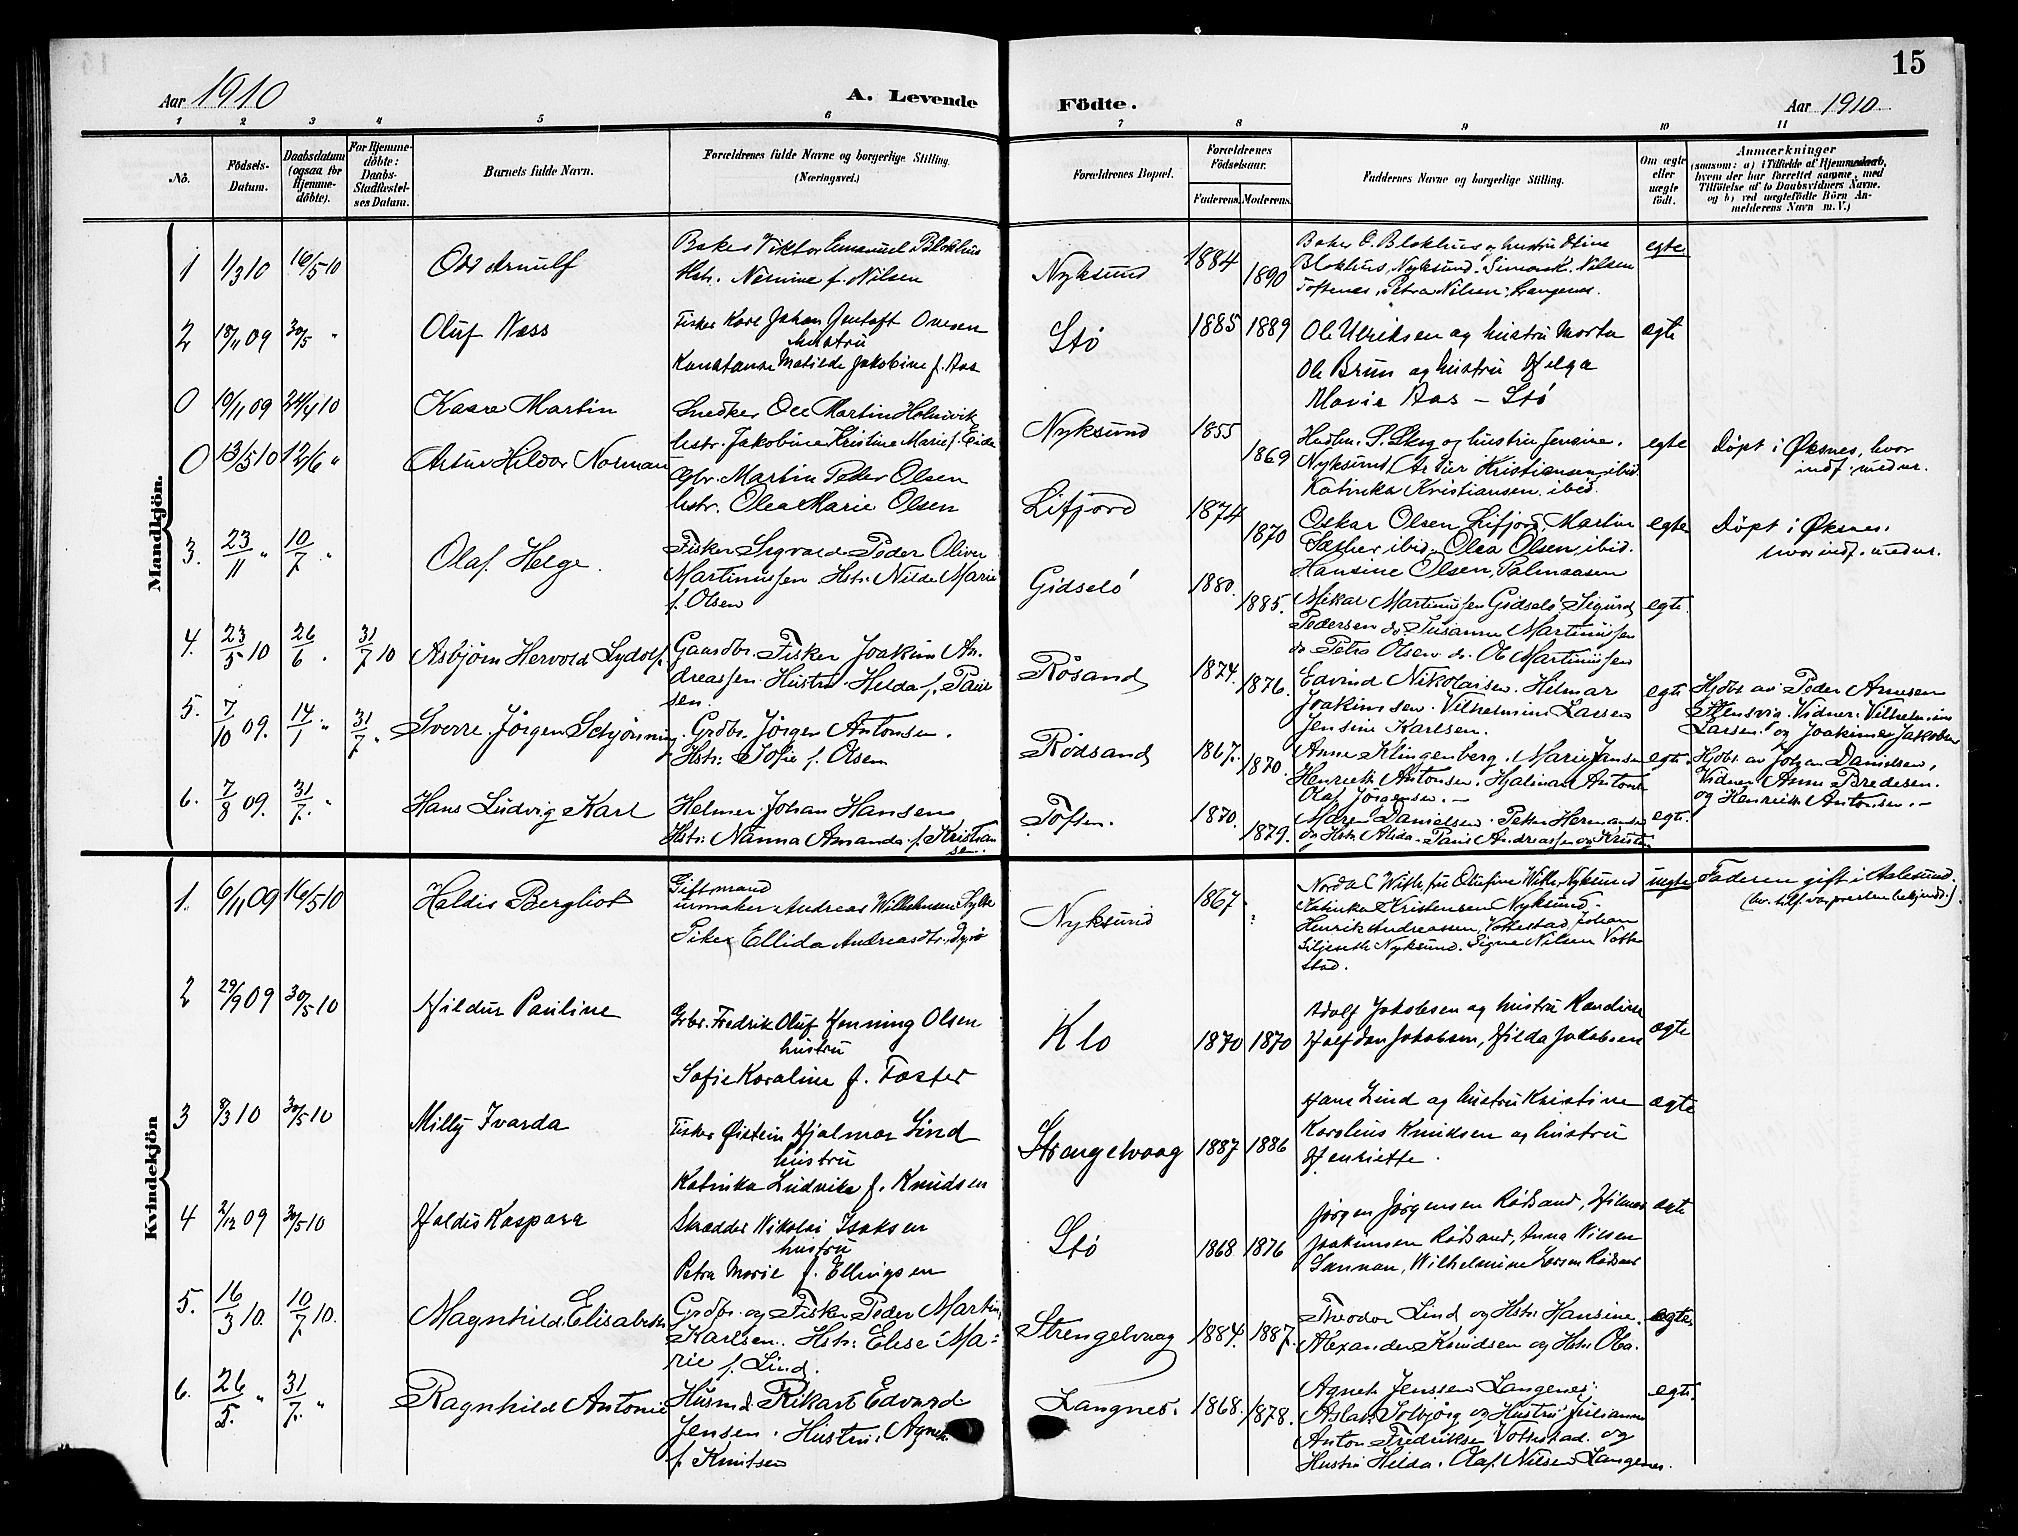 15
Aar 1910
A. Levende
Födte.
Aar 1910
1 2 3 4 5 6 7 8 9 10 11
No.
Födsels-
Datum.
Daabsdatum
(ogsaa for
Hjemme-
döbte).
For Hjemme-
döbte:
Daabs-
Stadfæstel-
ses Datum.
Barnets fulde Navn.
Forældrenes fulde Navne og borgerlige Stilling.
(Næringsvei.)
Forældrenes Bopæl.
Forældrenes
Födselsaar.
Faderens. Moderens.
Faddernes Navne og borgerlige Stilling.
Om ægte
eller
uægte
födt.
Anmærkninger
(saasom: a) i Tilfælde af Hjemmedaab,
hvem der har forrettet samme, med
Tilföielse af to Daabsvidners Navne.
og b) ved uægtefödte Börn An-
melderens Navn m. V.)
Mandkjön.
1 1/3 10 16/5 10 Odd Arnulf
Baker Viktor Emanuel Blokhus
Hstr. Nårmine f. Nilsen
Nyksund 1884 1890
Baker O. Blokhus og hustru Oline
Blokhus, Nyksund. Simon K. Nilsen
Toftenes, Petra Nilsen, Langenes.
egte
2 18/11 09 30/5 " Oluf Næss
Fisker Karl Johan Gustaft Ovesen
hustru
Konstanse Matilde Jakobine f. Aas
Stø 1885 1889
Ole Ulriksen og hustru Marta
Ole Brun og hustru Helga
Marie Aas - Stø
ægte
0 19/11 09 24/4 10 Kaare Martin
Snedker Ole Martin Holmvik
hstr. Jakobine Kristine Marie f. Eide
Nyksund 1855 1869
Handlm. S. Skog og hustru Jensine.
Nyksund Peder Kristiansen, ibid.
Katinka Kristiansen. ibid.
egte
Döpt i Øksnes, hvor
indf. med nr.
0 13/5 10 12/6 " Artur Hildor Norman
Gbr. Martin Peder Olsen
hstr. Olea Marie Olsen
Lifjord 1874 1870
Oskar Olsen, Lifjord, Martin
Sæther ibid. Olea Olsen, ibid.
Hansine Olsen, Palmaasen
egte
Döpt i Øksnes.
hvor indf. med nr.
3. 23/11 " 10/7 " Olaf Helge.
Fisker Sigvald Peder Oliver
Martinussen Hstr. Nilda Marie
f. Olsen
Gidselö 1880. 1885.
Mekal Martinussen Gidselö Sigurd
Pedersen do. Susanne Martinussen
do Petra Olsen do. Ole Martinussen
egte.
4. 23/5 10 26/6 . 31/7 10 Asbjörn Hervold Lydolf.
Gaardbr. Fisker Joakim An-
dreassen. Hustru. Hilda f. Paul
sen.
Rösand 1874. 1876.
Edvind Nikolaisen. Helmar
Joakimsen. Vilhelmine Larsen
Jensine Karlsen.
egte
Hjdbt. av Peder Arnesen
Vidner. Vilhelmine
Larsen og Joakime Jakobsen
5. 7/10 09. 14/1 " 31/7 " Sverre Jörgen Schjönning.
Grdbr. Jörgen Antonsen.
Hstr. Sofie f. Olsen
Rödsand 1867. 1870.
Anne Klingenberg. Marie Jansen
Henriette Antonsen. Hjalmar Antons
Olaf Jörgensen. -
egte.
Hjdbt. av Johan Danielsen,
Vidner Anne Bredesen.
og Henriette Antonsen. -
6. 7/8 09. 31/7. " Hans Ludvig Karl
Helmer Johan Hansen
Hstr. Nanna Amanda f. Kristian
sen.
Toften. 1870. 1879.
Maren Danielsen. Peter Hermansen
og Hstr. Alida. Paul Andreassen og Kristin
egte.
Kvindekjön
1. 6/11 09 16/5 10 Haldis Bergliot
Gift mand
urmaker Andreas Wilhelmsen Sylte
Pike Ellida Andreasdtr. Dyrö
Nyksund 1867 :
Nordal With, fru Olufine With, Nyksund
Katinka Kristensen Nyksund.
Henrik Andreassen, Vottestad, Johan
Siljeseth Nyksund. Signe Nilsen Votte
stad.
uegte
Faderen gift i Aalesund.
2 29/9 09 30/5 10 Hildur Pauline
Grbr. Fredrik Oluf Henning Olsen
hustru
Sofie Karaline f. Foster
Klo 1870 1870
Adolf Jakobsen og hustru Randine
Halfdan Jakobsen, Hilda Jakobsen
ægte
3 8/3 10 30/5 10 Milly Ivarda
Fisker Øistein Hjalmar Lind
hustru
Katinka Ludvika f. Knudsen
Strengelvaag 1887 1886
Hans Lind og hustru Kristine
Karolius Knudsen og hustru
Henriette.
ægte
4 2/12 09 30/5 10 Haldis Kaspara
Skrædder Nikolai Isaksen
hustru
Petra Marie f. Ellingsen
Stø 1868 1876
Jørgen Jørgensen Rødsand, Hilmar
Joakimsen Rødsand, Anna Nilsen
Sannan, Wilhelmine Larsen Rødsand
ægte
5. 16/3 10. 10/7 10. Magnhild Elisabeth
Grdbr. og Fisker Peder Martin
Karlsen. Hstr. Elise Ma-
rie f. Lind.
Strengelvaag 1884. 1887.
Theodor Lind og Hstr. Hansine.
Alexander Knudsen og Hstr. Ola.
egte.
6. 26/5. " 31/7. " Ragnhild Antonie
Husmd. Rikart Edvard
Jensen. Hustru. Agnete
f. Knutsen
Langnes. 1868. 1878.
Agnete Jenssen Langenes.
Aslak Solbjörg og Hustru Julianne
Anton Fredriksen Vottestad. og
Hustru Hilda. Olaf Nilsen Langenes.
egte.